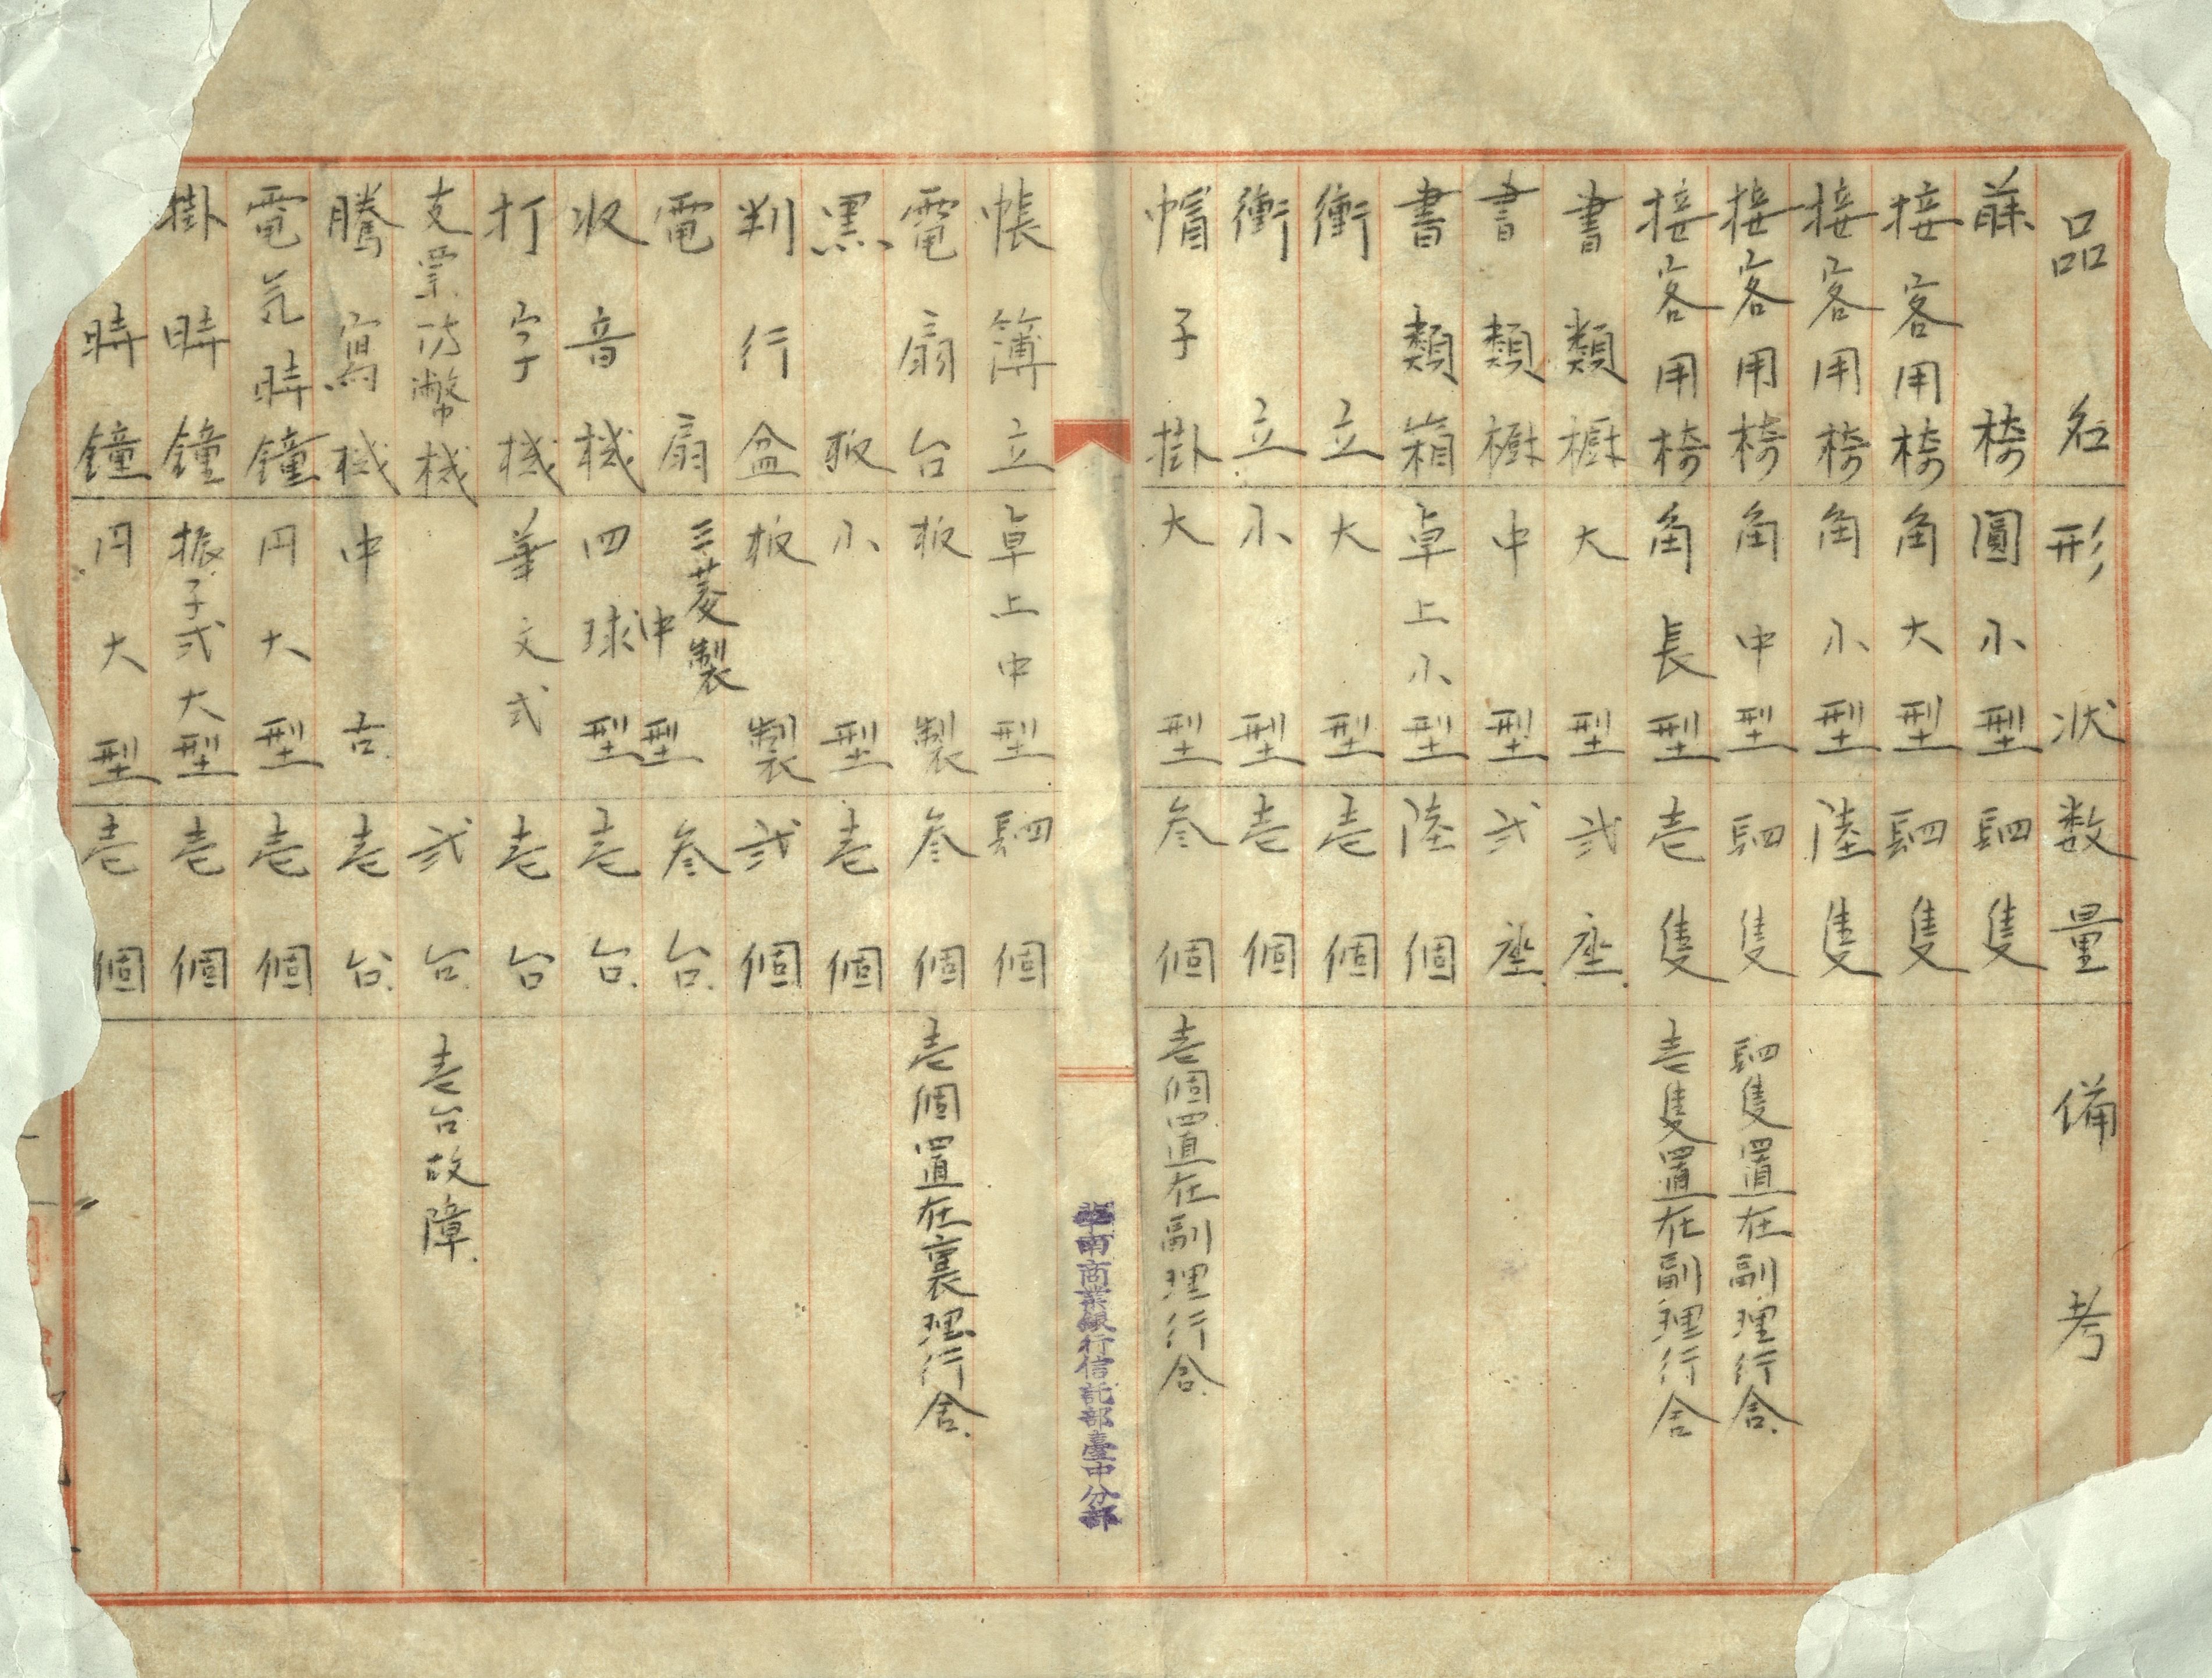 品名 形状 数量 備考
籐椅 圓小型 駟隻
接客用椅 角大型 駟隻
接客用椅 角小型 陸隻
接客用椅 角中型 駟隻 駟隻置在副理行舍.
接客用椅 角長型 壱隻 壱隻置在副理行舍
書類橱 大型 弐座.
書類橱 中型 弐座.
書類箱 卓上小型 陸個
衝立 大型 壱個
衝立 小型 壱個
帽子掛 大型 叁個 壱個置在副理行舍.
華南商業銀行信託部臺中分部
帳簿立 卓上中型 駟個
電扇台 板製 叁個 壱個置在裏理行舍.
黒板 小型 壱個
判行盆 板製 弐個
電扇 三菱製中型 叁台.
收音機 四球型 壱台.
打字機 華文式 壱台
支票防弊機 弐台. 壱台故障.
騰寫機 中古. 壱台.
電気時鐘 円大型 壱個
掛時鐘 振子式大型 壱個
時鐘 円大型 壱個